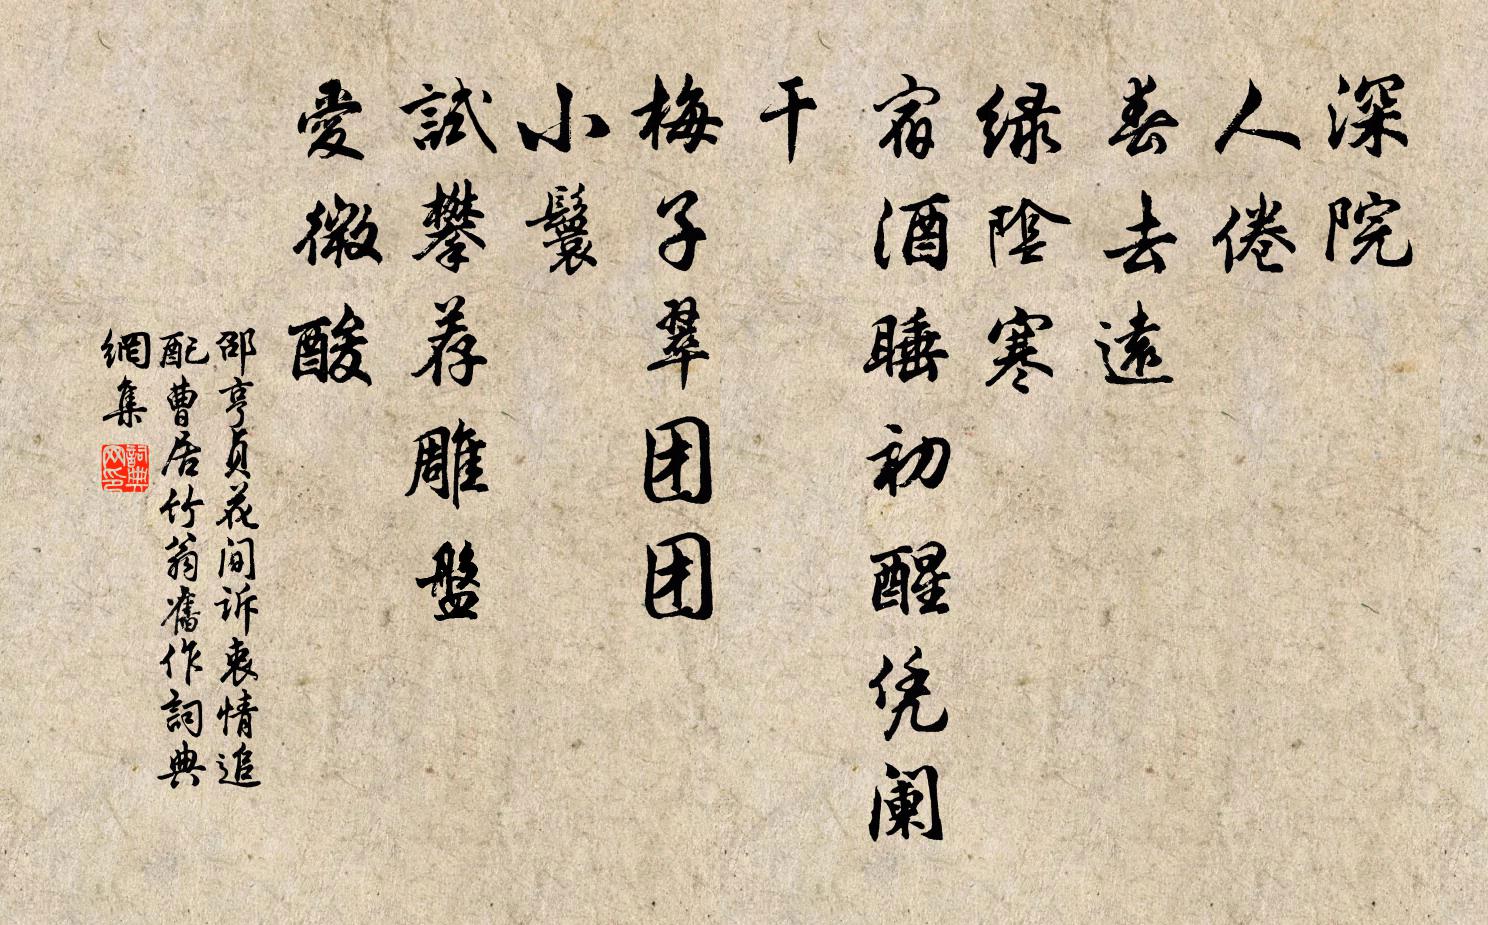 深院
人倦
春去遠
緑陰寒
宿酒睡初醒凭阑
干
梅子翠团团
小鬟
試攀荐雕盤
愛微酸
邵亨貞花间訴衷情追
配曹居竹翁舊作詞典
網集
詞典网印